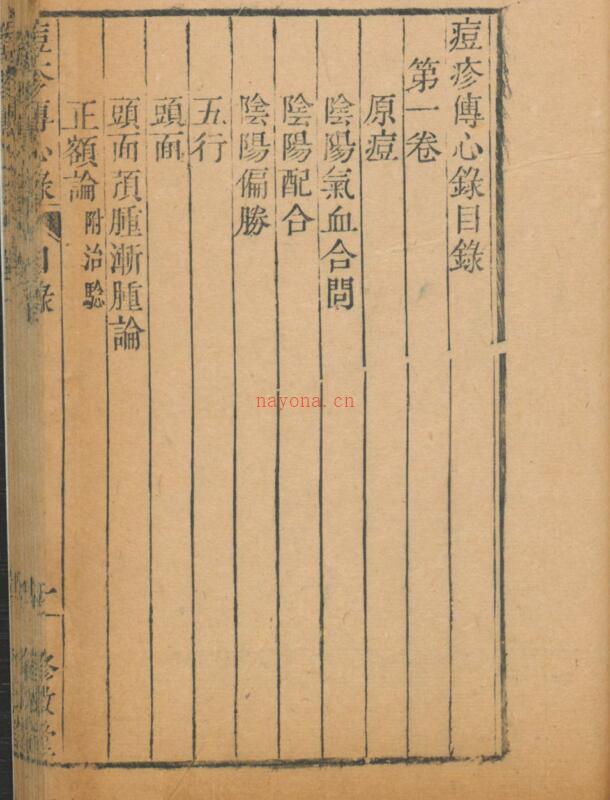 痘疹傳心錄目錄
第一卷
原痘
陰陽氣血合問
陰陽配合
陰陽偏勝
五行
頭面
頭面預腫漸腫論
正額論 附治驗
痘疹傳心錄 目錄
修敬堂
nayona.cn